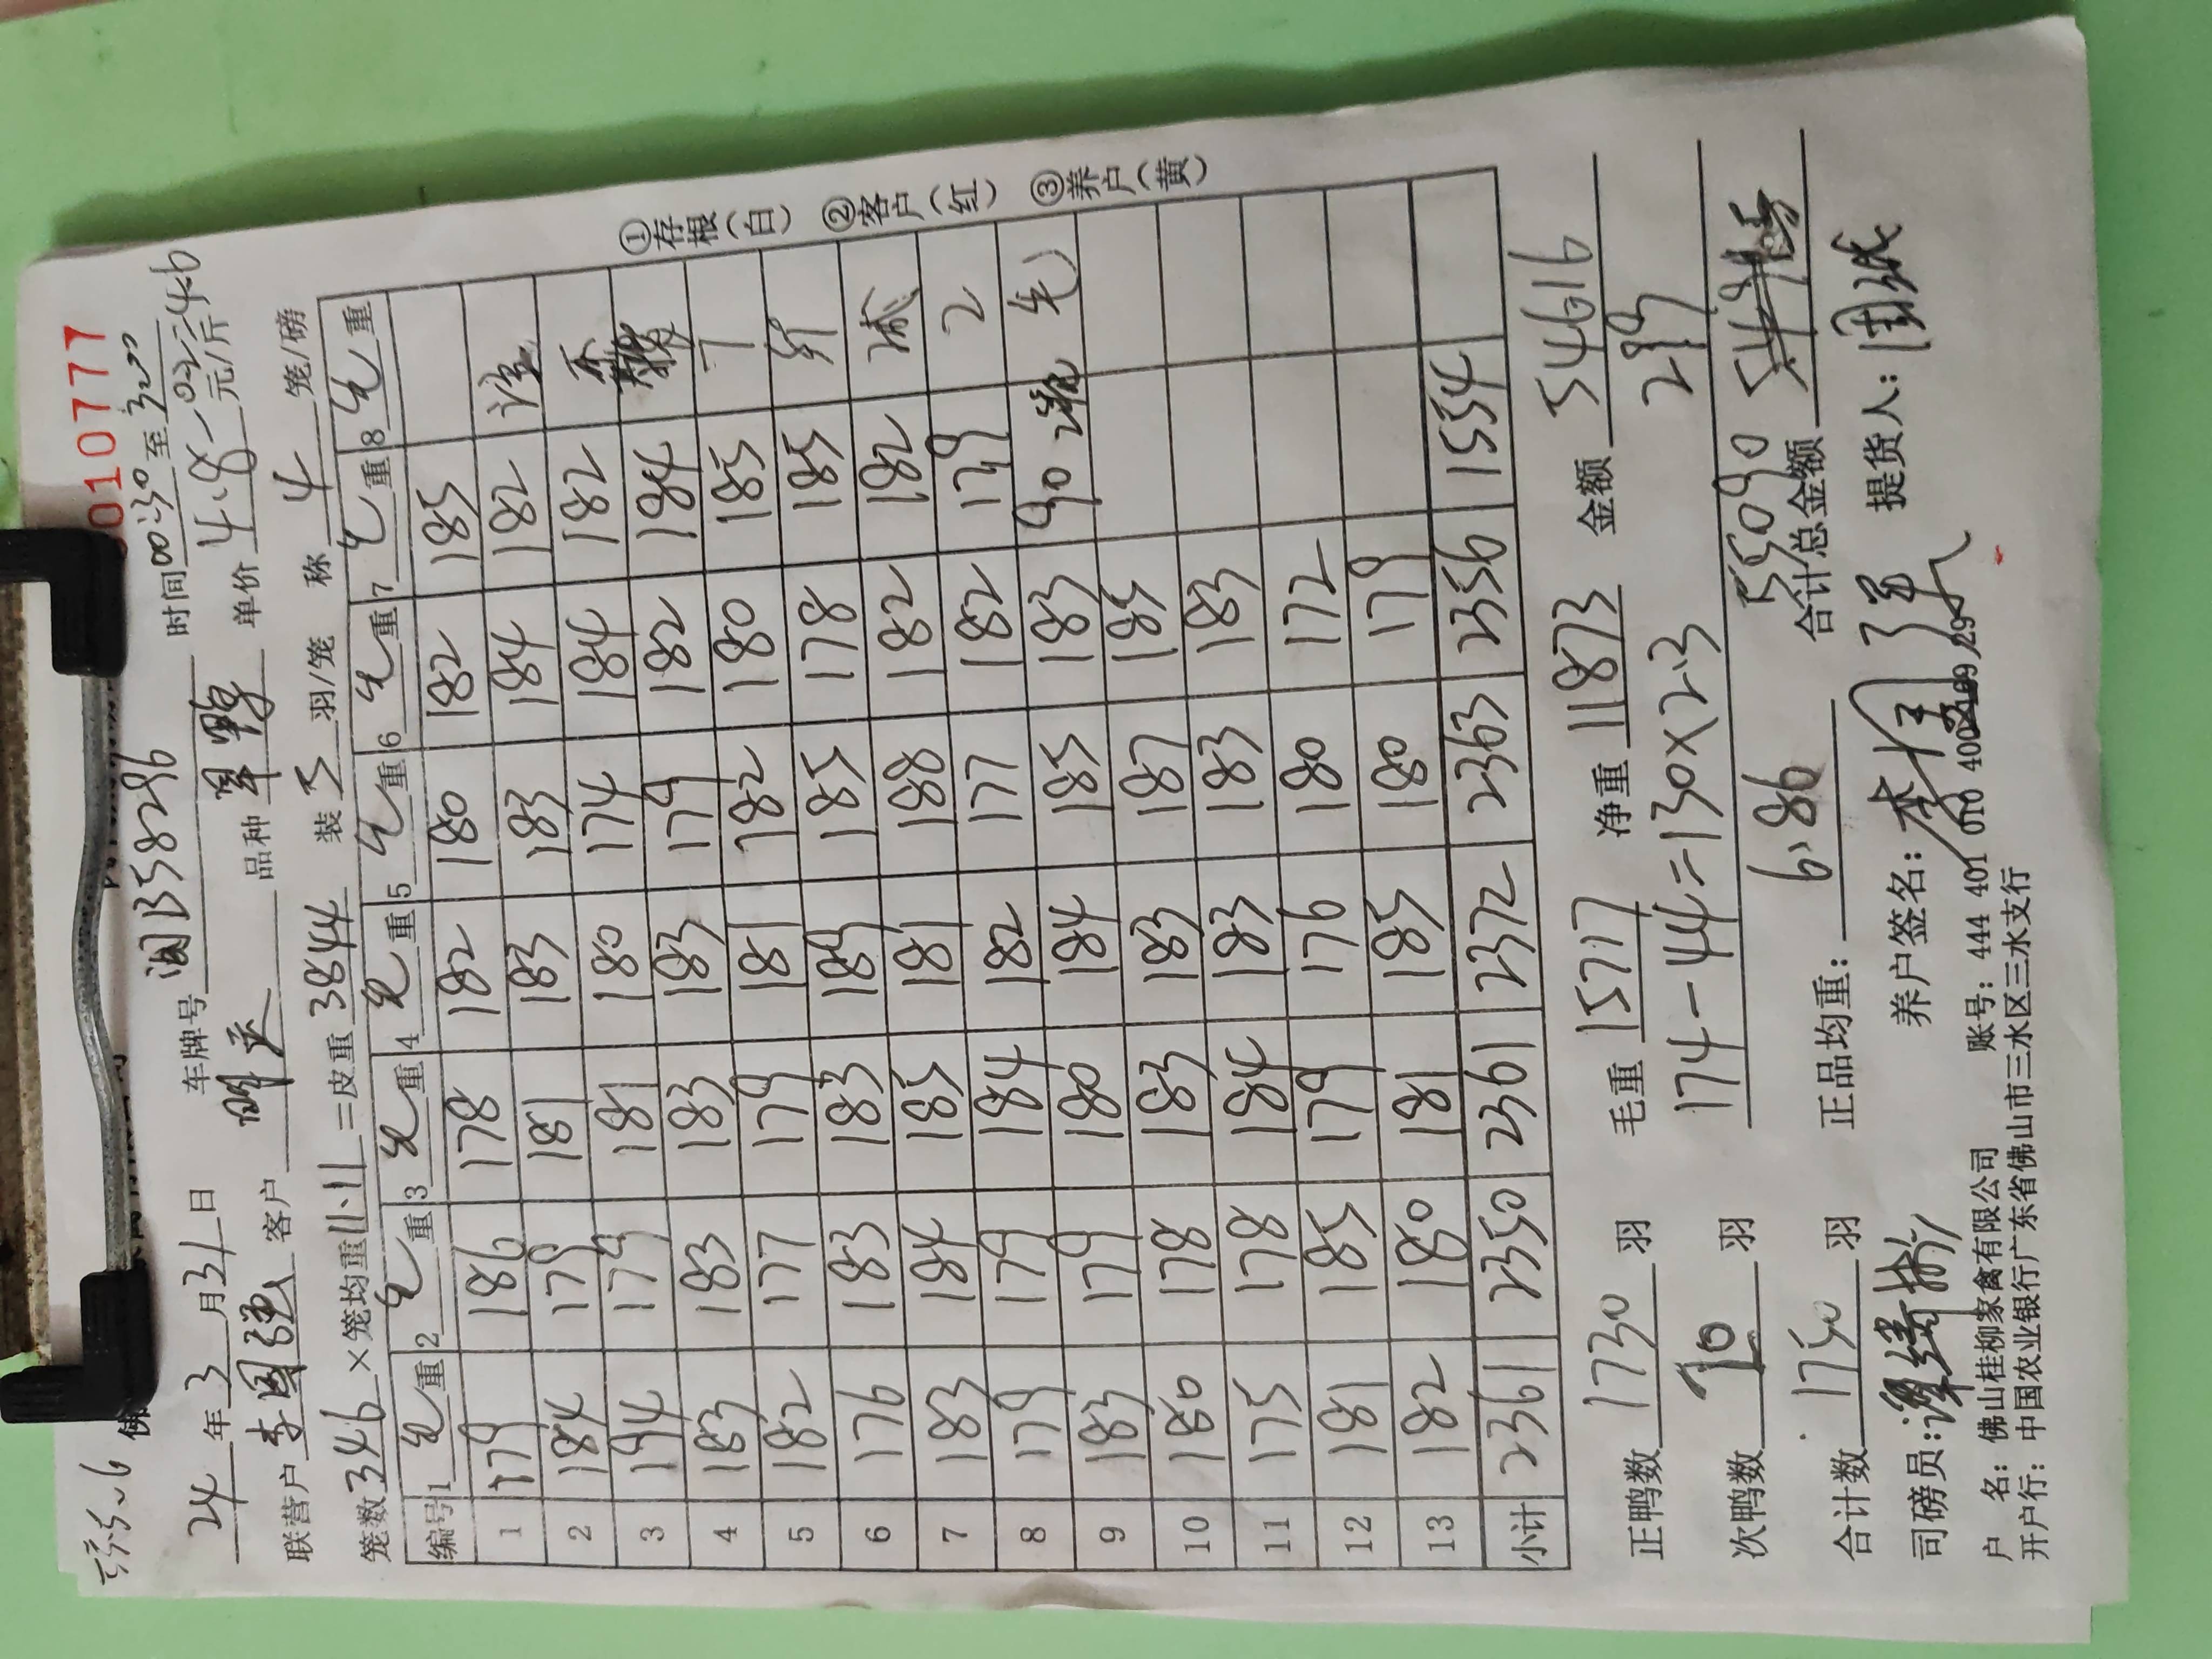 0010777
24年3月31日 车牌号 湘B58296 时间00:30至3:20
联营户 李国强 客户 品种 单价4.8-0.2=4.6元/斤
笼数346×笼均重11.11=皮重3844 装5羽/笼 称4笼/磅
编号 1毛重 2毛重 3毛重 4毛重 5毛重 6毛重 7毛重 8毛重
1 179 186 178 182 180 182 185
2 184 179 181 183 183 184 182 注
3 194 179 181 180 174 184 182
4 183 183 183 183 179 182 184
5 182 177 179 181 182 180 185 7
6 176 183 183 189 185 178 185 斤
7 183 184 185 181 188 182 182 减
8 179 179 184 182 177 182 179 2
9 183 179 180 184 185 183 90 2笼 毛)
10 180 178 183 183 187 185
11 175 178 184 183 183 183
12 181 185 179 176 180 172
13 182 180 181 185 180 179
小计 2361 2350 2361 2372 2363 2356 1554
正鸭数 1730 羽 毛重 15717 净重 11873 金额 54616
次鸭数 20 羽 174-44=130×2.3 299
55090
合计数 1750 羽 正品均重: 6.86 合计总金额
司磅员: 养户签名: 李国强 提货人: 国诚
户 名: 佛山桂柳家禽有限公司 账号: 444 401 010 400
开户行: 中国农业银行广东省佛山市三水区三水支行
①存根(白) ②客户(红) ③养户(黄)